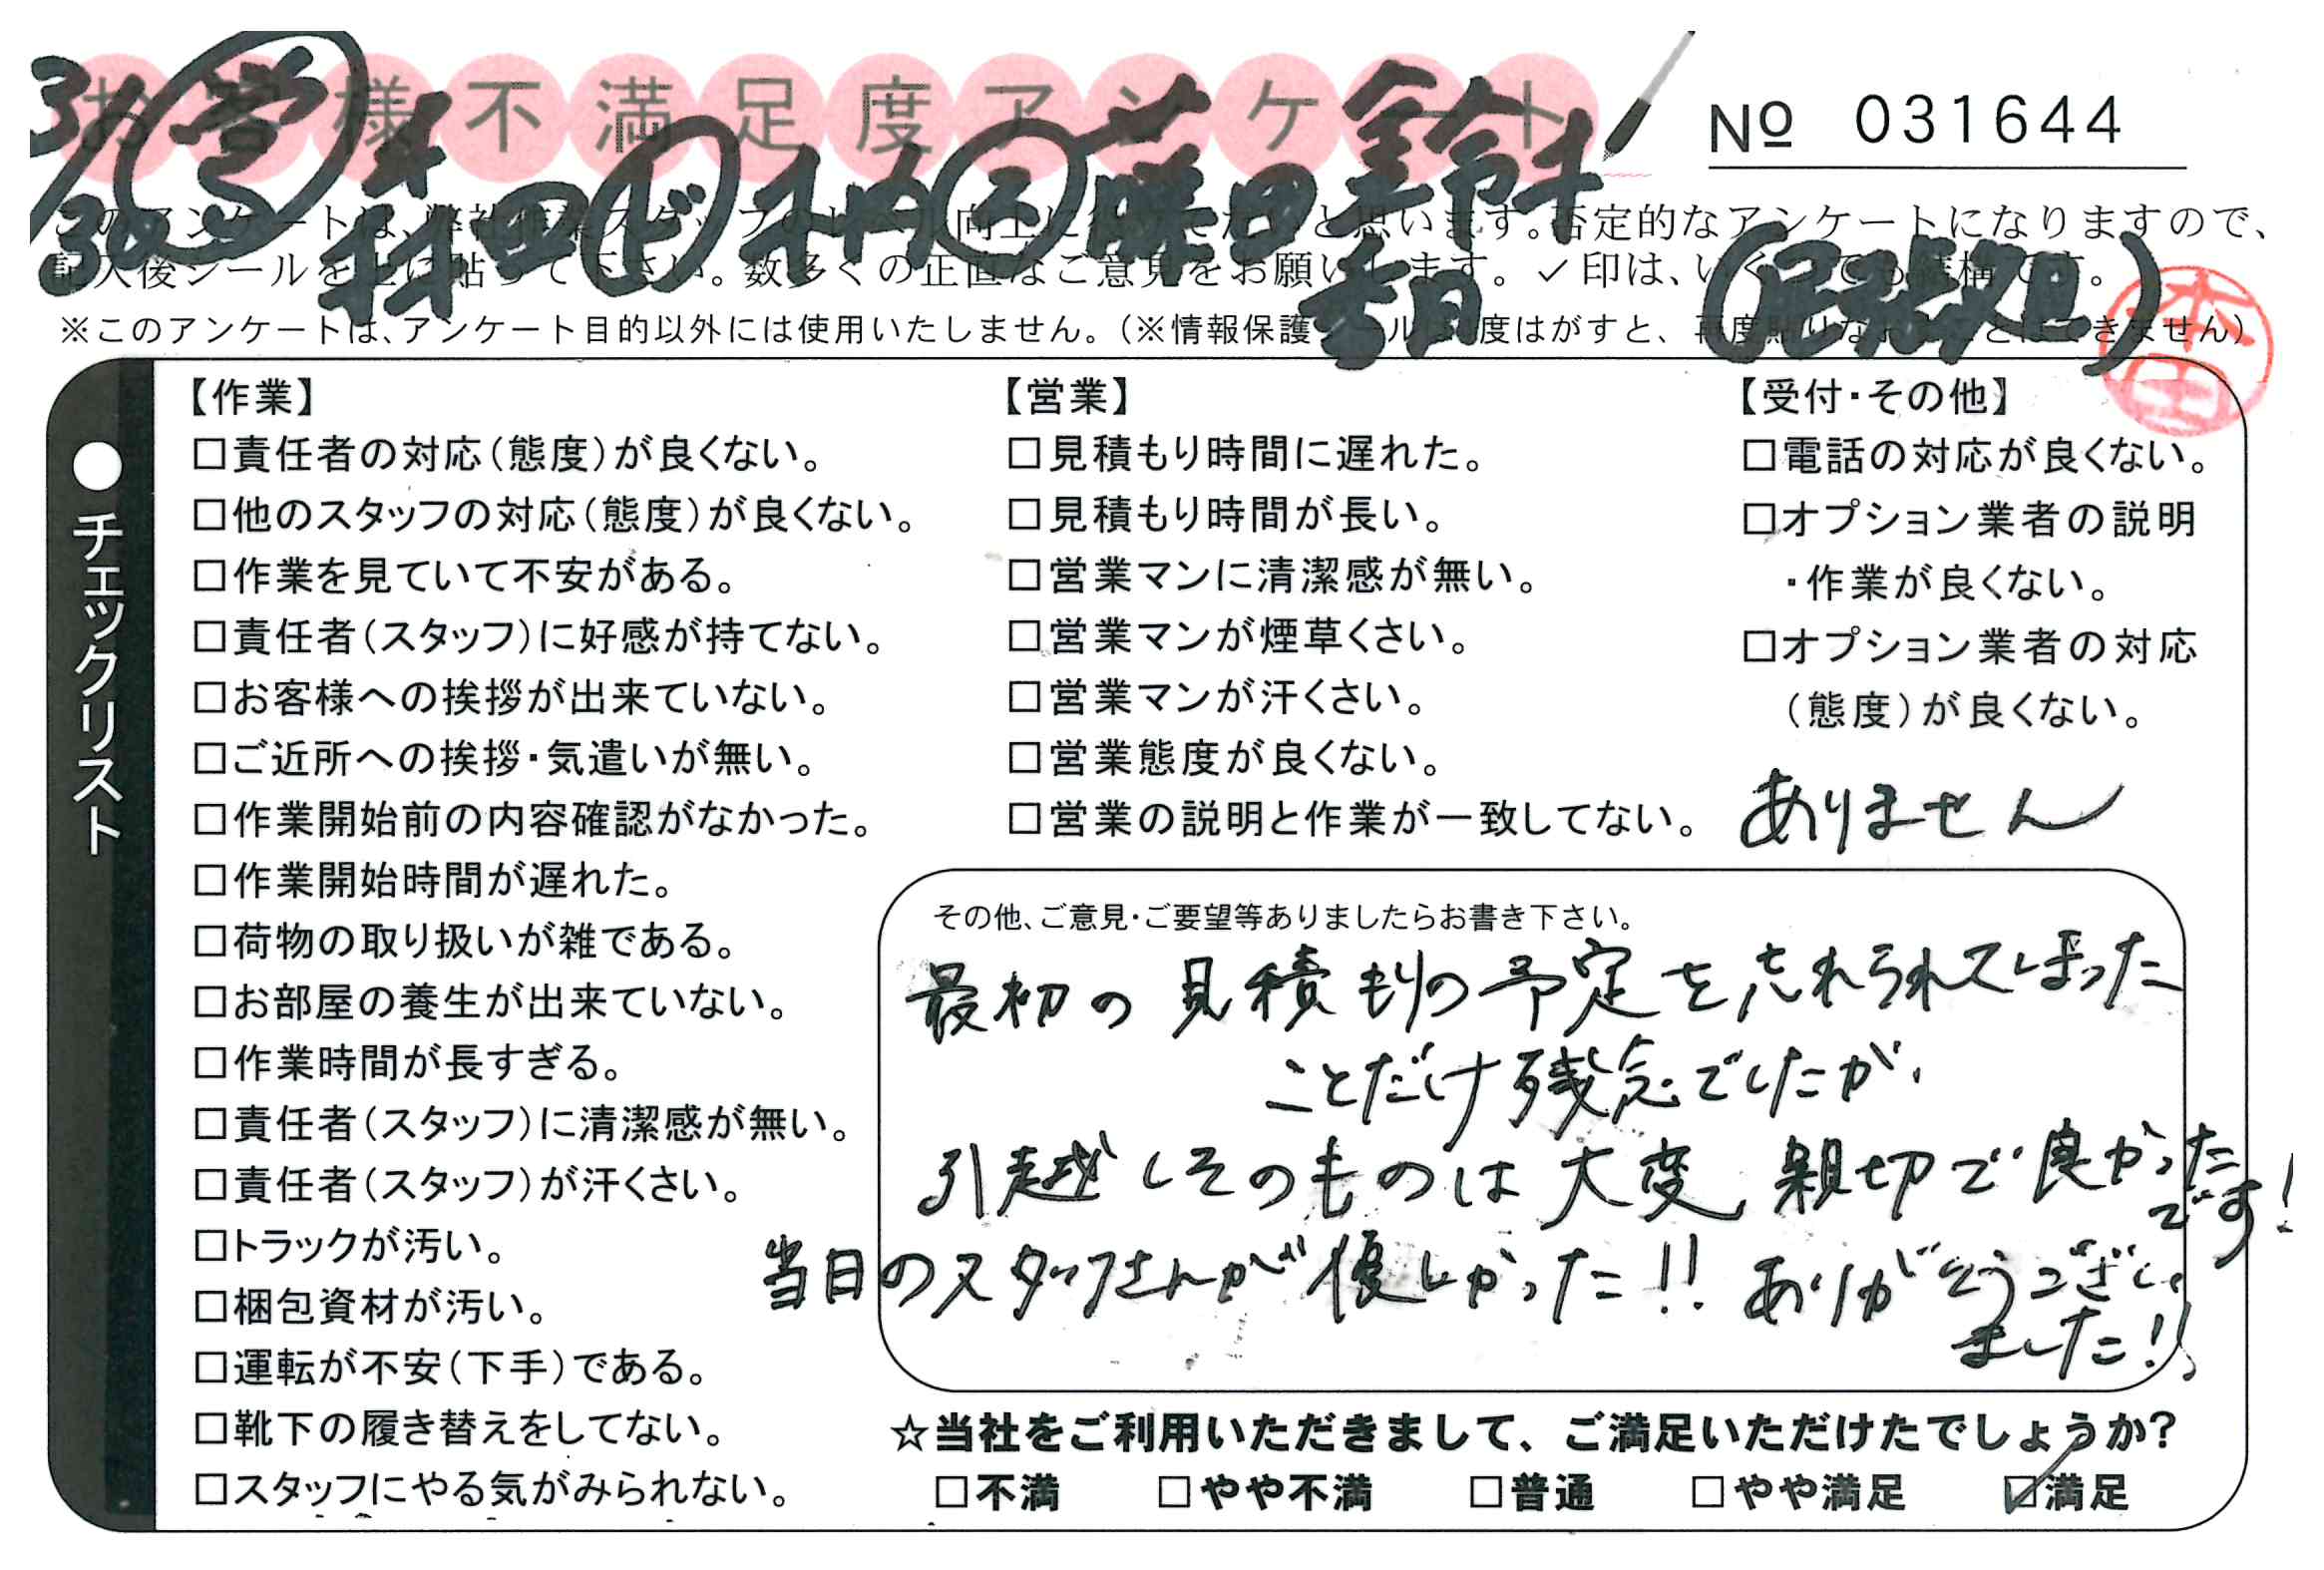 お客様不満足度アンケート
№ 031644
3/30 営 村田 ド 木内 ス 藤田 鈴木
春日
このアンケートは、弊社作業スタッフのレベル向上に役立てたいと思います。否定的なアンケートになりますので、
記入後シールを上に貼って下さい。数多くの正直なご意見をお願いします。✓印は、いくつでも結構です。
※このアンケートは、アンケート目的以外には使用いたしません。（※情報保護シールは1度はがすと、再度貼りなおすことはできません）
本田
●チェックリスト
【作業】
□責任者の対応（態度）が良くない。
□他のスタッフの対応（態度）が良くない。
□作業を見ていて不安がある。
□責任者（スタッフ）に好感が持てない。
□お客様への挨拶が出来ていない。
□ご近所への挨拶・気遣いが無い。
□作業開始前の内容確認がなかった。
□作業開始時間が遅れた。
□荷物の取り扱いが雑である。
□お部屋の養生が出来ていない。
□作業時間が長すぎる。
□責任者（スタッフ）に清潔感が無い。
□責任者（スタッフ）が汗くさい。
□トラックが汚い。
□梱包資材が汚い。
□運転が不安（下手）である。
□靴下の履き替えをしてない。
□スタッフにやる気がみられない。
【営業】
□見積もり時間に遅れた。
□見積もり時間が長い。
□営業マンに清潔感が無い。
□営業マンが煙草くさい。
□営業マンが汗くさい。
□営業態度が良くない。
□営業の説明と作業が一致してない。
【受付・その他】
□電話の対応が良くない。
□オプション業者の説明
・作業が良くない。
□オプション業者の対応
（態度）が良くない。
ありません
その他、ご意見・ご要望等ありましたらお書き下さい。
最初の見積もりの予定を忘れられてしまった
ことだけ残念でしたが、
引越しそのものは大変親切で良かった
です！
当日のスタッフさんが優しかった!! ありがとうござい
ました!!
☆当社をご利用いただきまして、ご満足いただけたでしょうか？
□不満 □やや不満 □普通 □やや満足 ☑満足